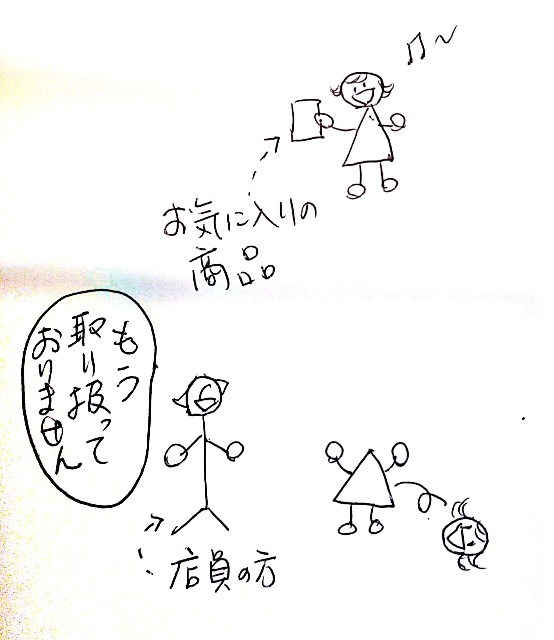 お気に入りの
商品
もう
取り扱って
おりません
店員の方